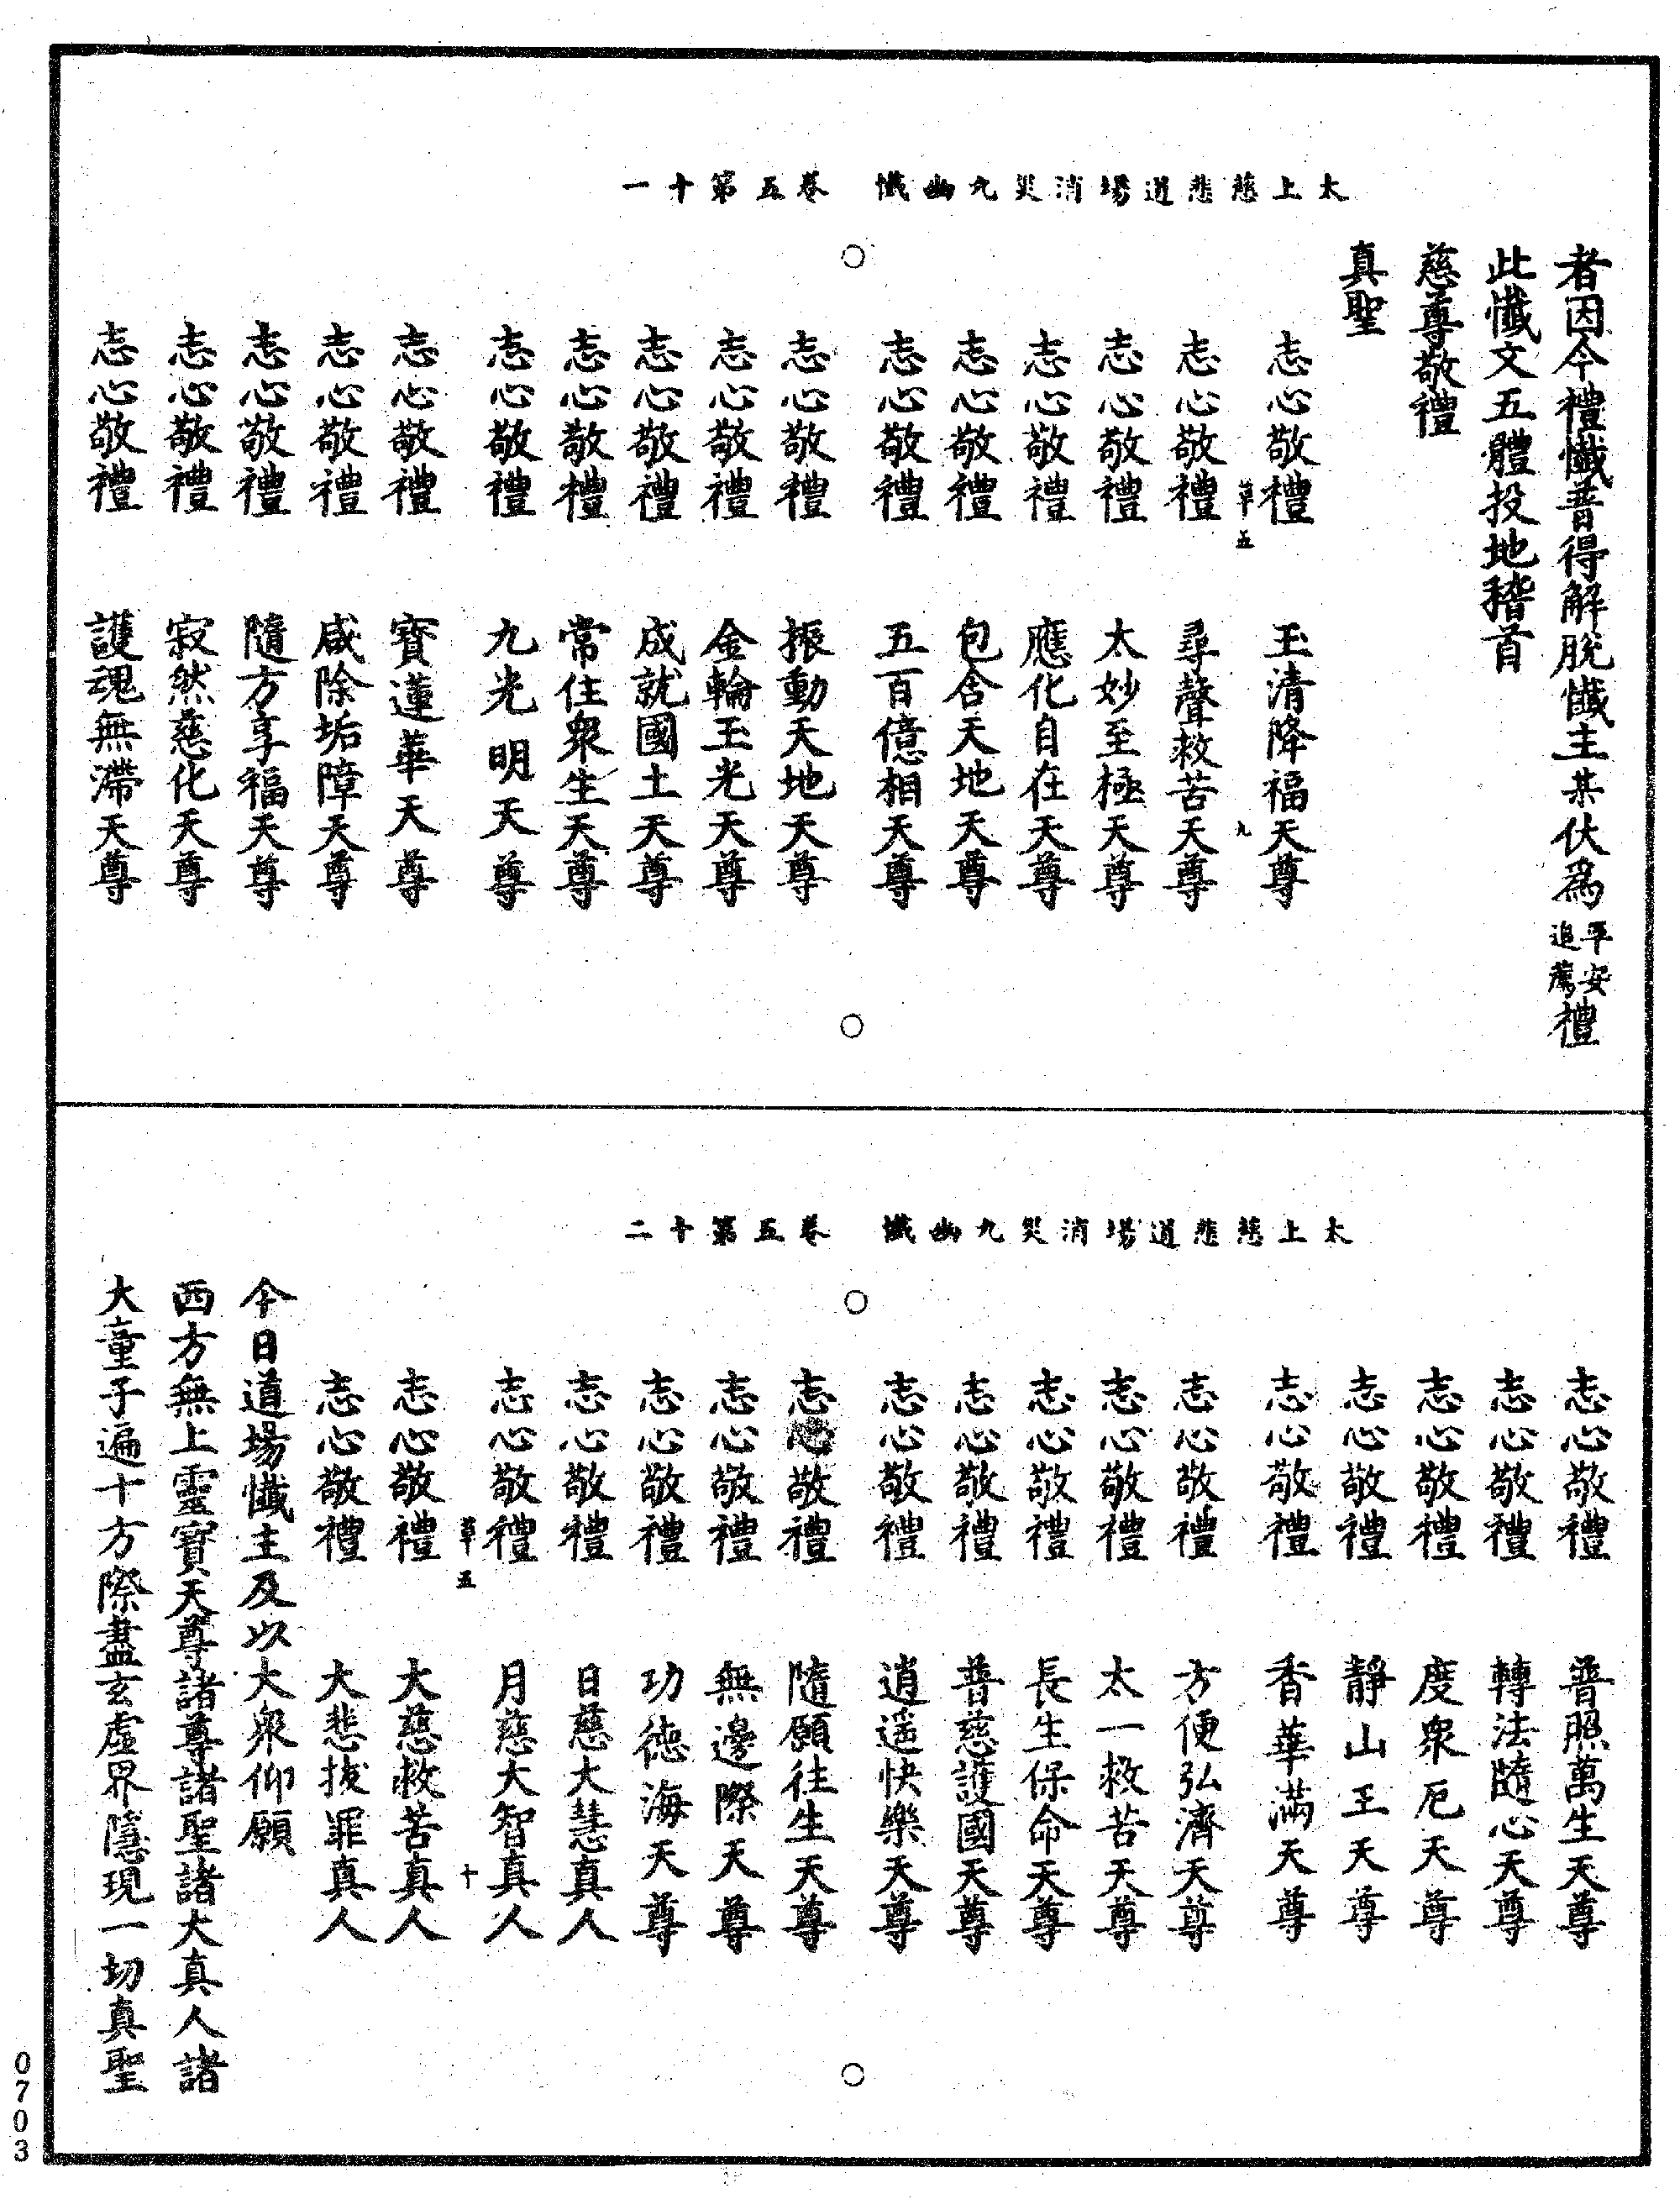 太上慈悲道場消災九幽懺　卷五第十一
者因今禮懺普得解脫懺主某伏爲平安追薦禮
此懺文五體投地稽首
慈尊敬禮
真聖
志心敬禮　玉清降福天尊
草五　九
志心敬禮　尋聲救苦天尊
志心敬禮　太妙至極天尊
志心敬禮　應化自在天尊
志心敬禮　包含天地天尊
志心敬禮　五百億相天尊
志心敬禮　振動天地天尊
志心敬禮　金輪玉光天尊
志心敬禮　成就國土天尊
志心敬禮　常住衆生天尊
志心敬禮　九光明天尊
志心敬禮　寳蓮華天尊
志心敬禮　咸除垢障天尊
志心敬禮　隨方享福天尊
志心敬禮　寂然慈化天尊
志心敬禮　護魂無滯天尊
太上慈悲道場消災九幽懺　卷五第十二
志心敬禮　普照萬生天尊
志心敬禮　轉法隨心天尊
志心敬禮　度衆厄天尊
志心敬禮　靜山王天尊
志心敬禮　香華滿天尊
志心敬禮　方便弘濟天尊
志心敬禮　太一救苦天尊
志心敬禮　長生保命天尊
志心敬禮　普慈護國天尊
志心敬禮　逍遥快樂天尊
志心敬禮　隨願往生天尊
志心敬禮　無邊際天尊
志心敬禮　功德海天尊
志心敬禮　日慈大慧真人
志心敬禮　月慈大智真人
草五　十
志心敬禮　大慈救苦真人
志心敬禮　大悲拔罪真人
今日道場懺主及以大衆仰願
西方無上靈寳天尊諸尊諸聖諸大真人諸
大童子遍十方際盡玄虛界隱現一切真聖
0703